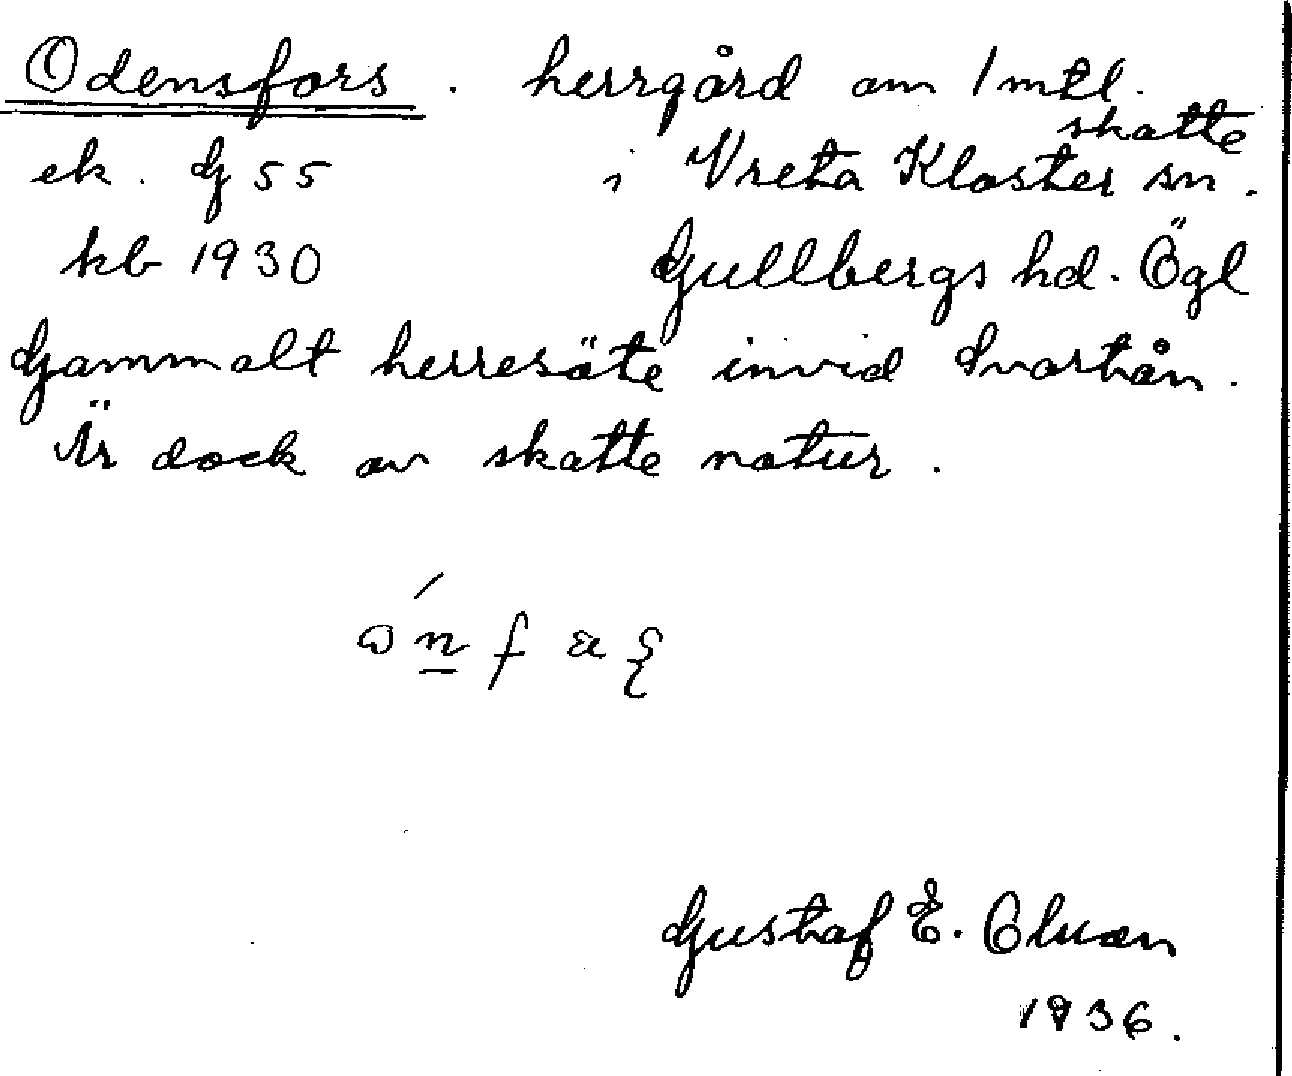 Odensfors. herrgård om 1 mtl. skatte
ek. G 55 i Vreta Kloster sn.
kb 1930 Gullbergs hd. Ögl
Gammalt herresäte invid Svartån.
Är dock av skatte natur.
Gustaf E.
1936.